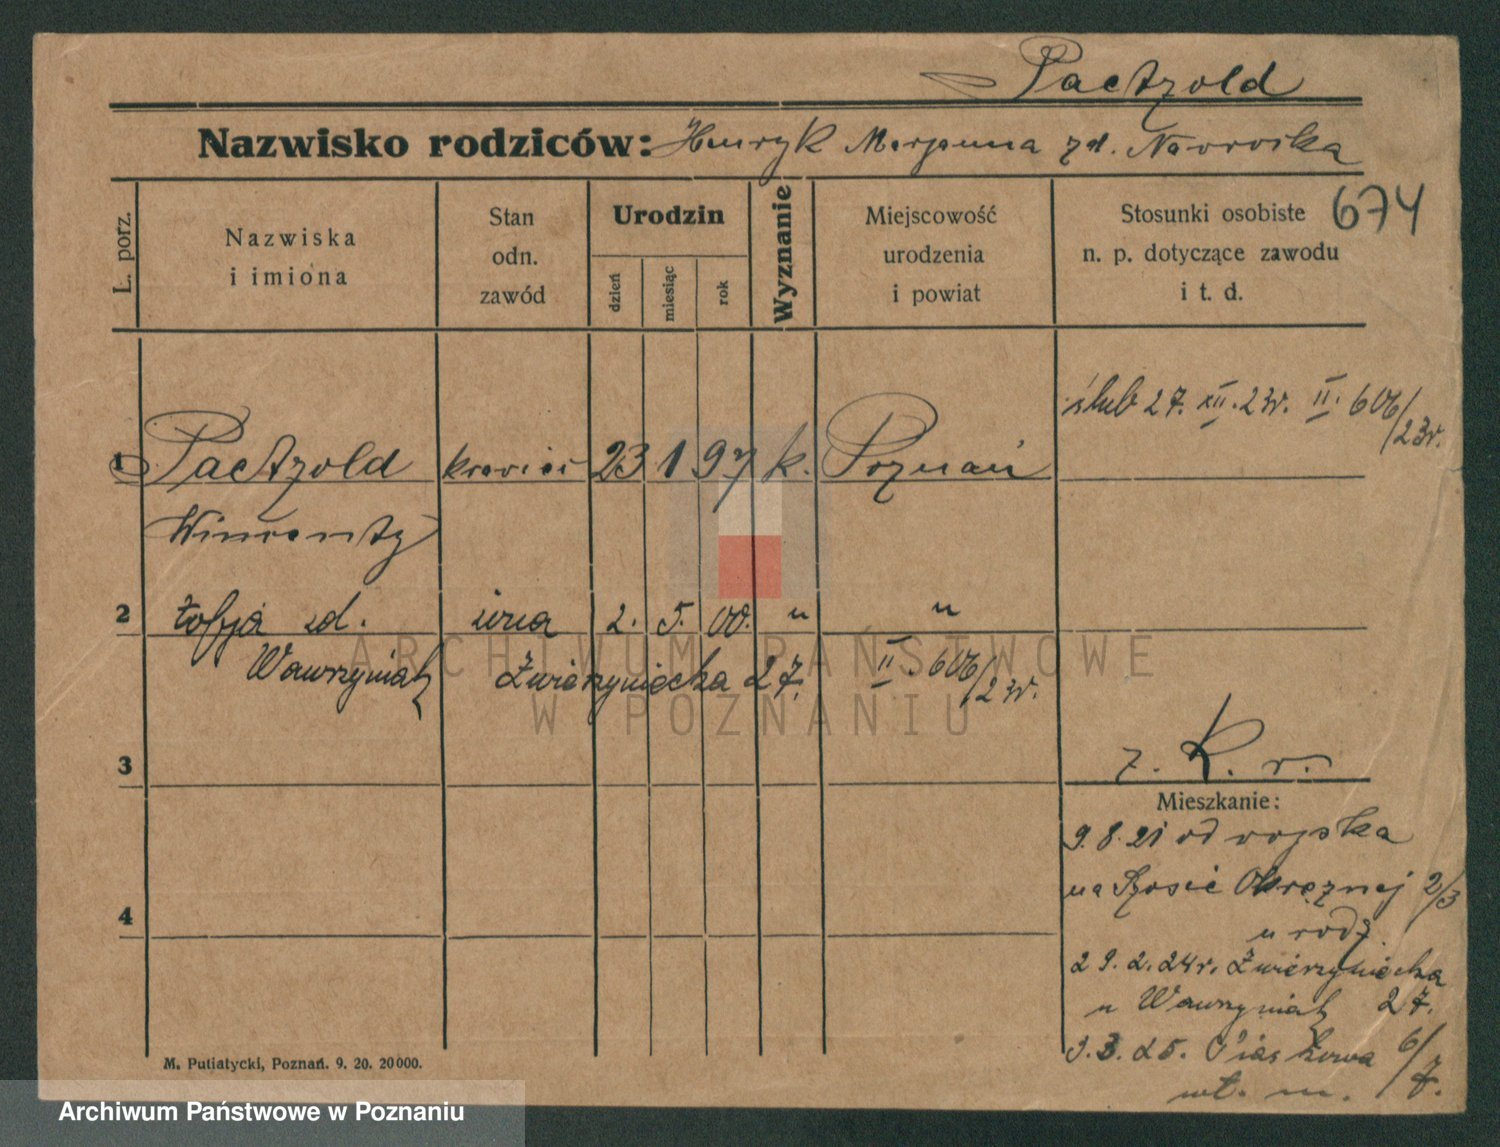 Paetzold
Nazwisko rodziców: Henryk Marjanna zd. Nawrocka
L. porz.
Nazwiska
i imiona
Stan
odn.
zawód
Urodzin
dzień
miesiąc
rok
Wyznanie
Miejscowość
urodzenia
i powiat
Stosunki osobiste
n. p. dotyczące zawodu
i t. d.
674
ślub 27. XII. 23r. II. 606/23r.
1 Paetzold krawiec 23 1 97 k. Poznań
Wincenty
2 Zofja zd. żona 2. 5. 00. " "
Wawrzyniak Zwierzyniecka 27. II. 606/23r.
3
z. K. r.
Mieszkanie:
9.8.21 od wojska
na Szosie Okrężnej 2/3
u rodz.
4
29.2.24r. Zwierzyniecka
u Wawrzyniak 27.
3.3.25. Piaskowa 6/7.
wł. m.
M. Putiatycki, Poznań. 9. 20. 20000.
ARCHIWUM PAŃSTWOWE
W POZNANIU
Archiwum Państwowe w Poznaniu